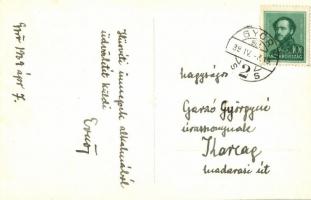 Győr 1939 ápr 7.
Húsvéti ünnepek alkalmából
üdvözletet küldi
Ernő
GYŐR
2
Nagyságos
Garzó Györgyné
úrasszonynak
Karcag
madarasi út